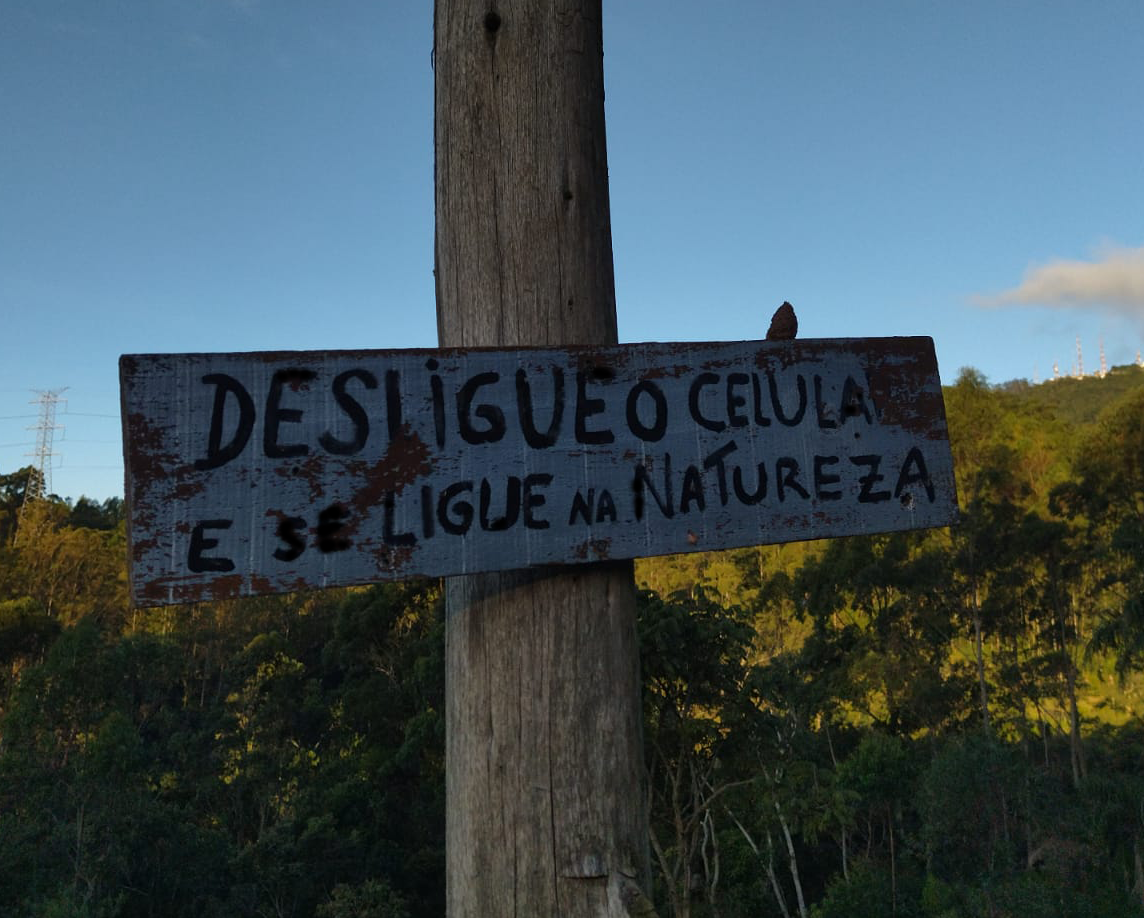 DESLIGUE O CELULA
E SE LIGUE NA NATUREZA